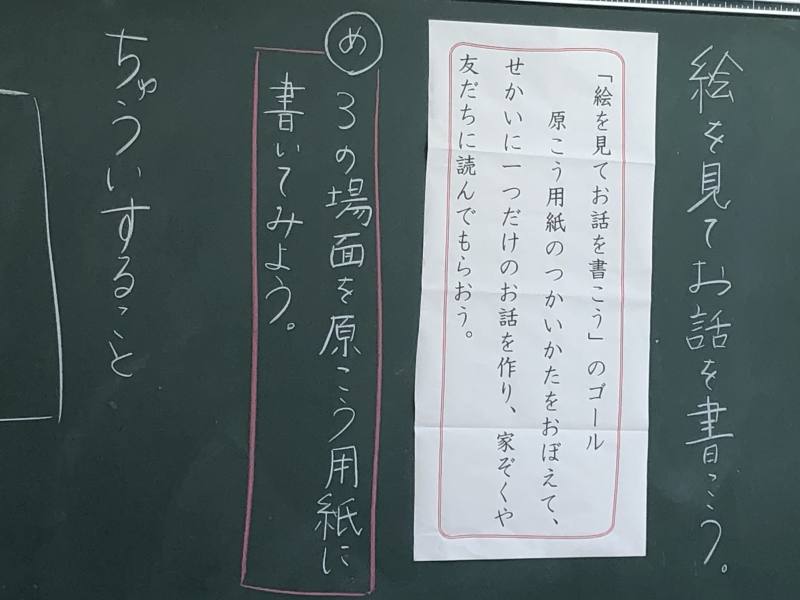 絵を見てお話を書こう。
「絵を見てお話を書こう」のゴール
原こう用紙のつかいかたをおぼえて、
せかいに一つだけのお話を作り、家ぞくや
友だちに読んでもらおう。
め
3の場面を原こう用紙に
書いてみよう。
ちゅういすること